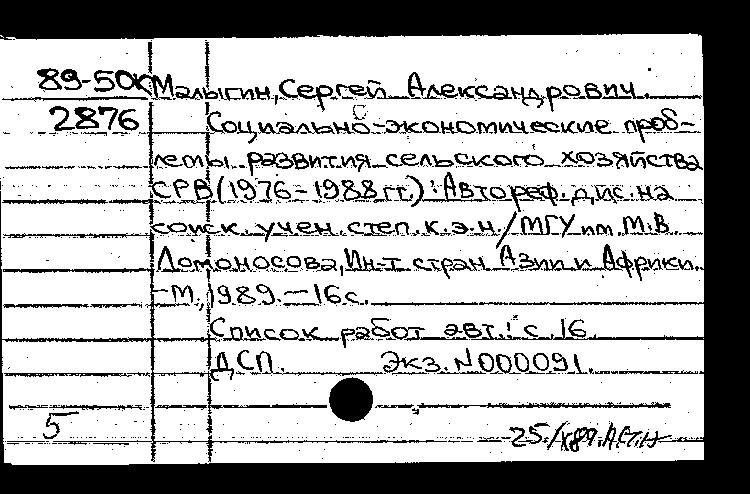 89-50к Малыгин, Сергей Александрович.
2876 Социально-экономические проб-
лемы развития сельского хозяйства
СРВ (1976-1988 гг.) : Автореф. дис. на
соиск. учен. степ. к. э. н. / МГУ им. М.В.
Ломоносова, Ин-т стран Азии и Африки.
-М., 1989. - 16 с.
Список работ авт.: с. 16.
ДСП. Экз. N 000091.
5